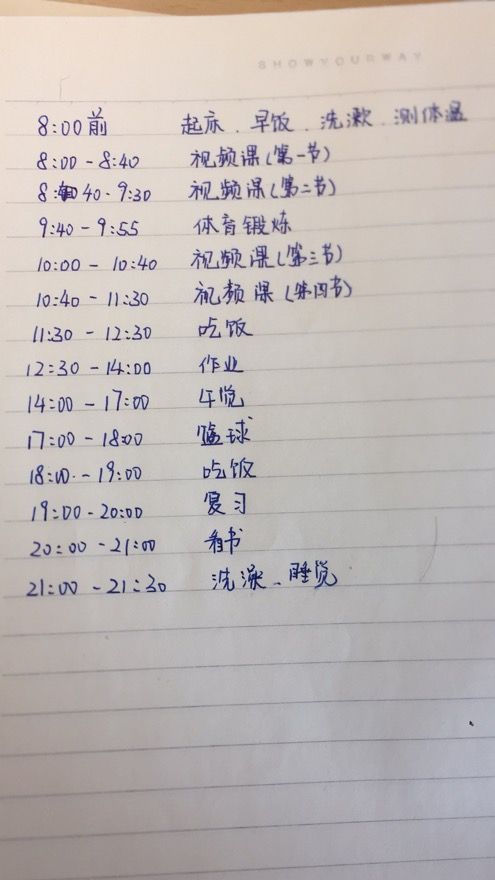 SHOWYOURWAY
8:00前 起床、早饭、洗漱、测体温
8:00-8:40 视频课(第一节)
8:40-9:30 视频课(第二节)
9:40-9:55 体育锻炼
10:00-10:40 视频课(第三节)
10:40-11:30 视频课(第四节)
11:30-12:30 吃饭
12:30-14:00 作业
14:00-17:00 午觉
17:00-18:00 篮球
18:00-19:00 吃饭
19:00-20:00 复习
20:00-21:00 看书
21:00-21:30 洗澡、睡觉